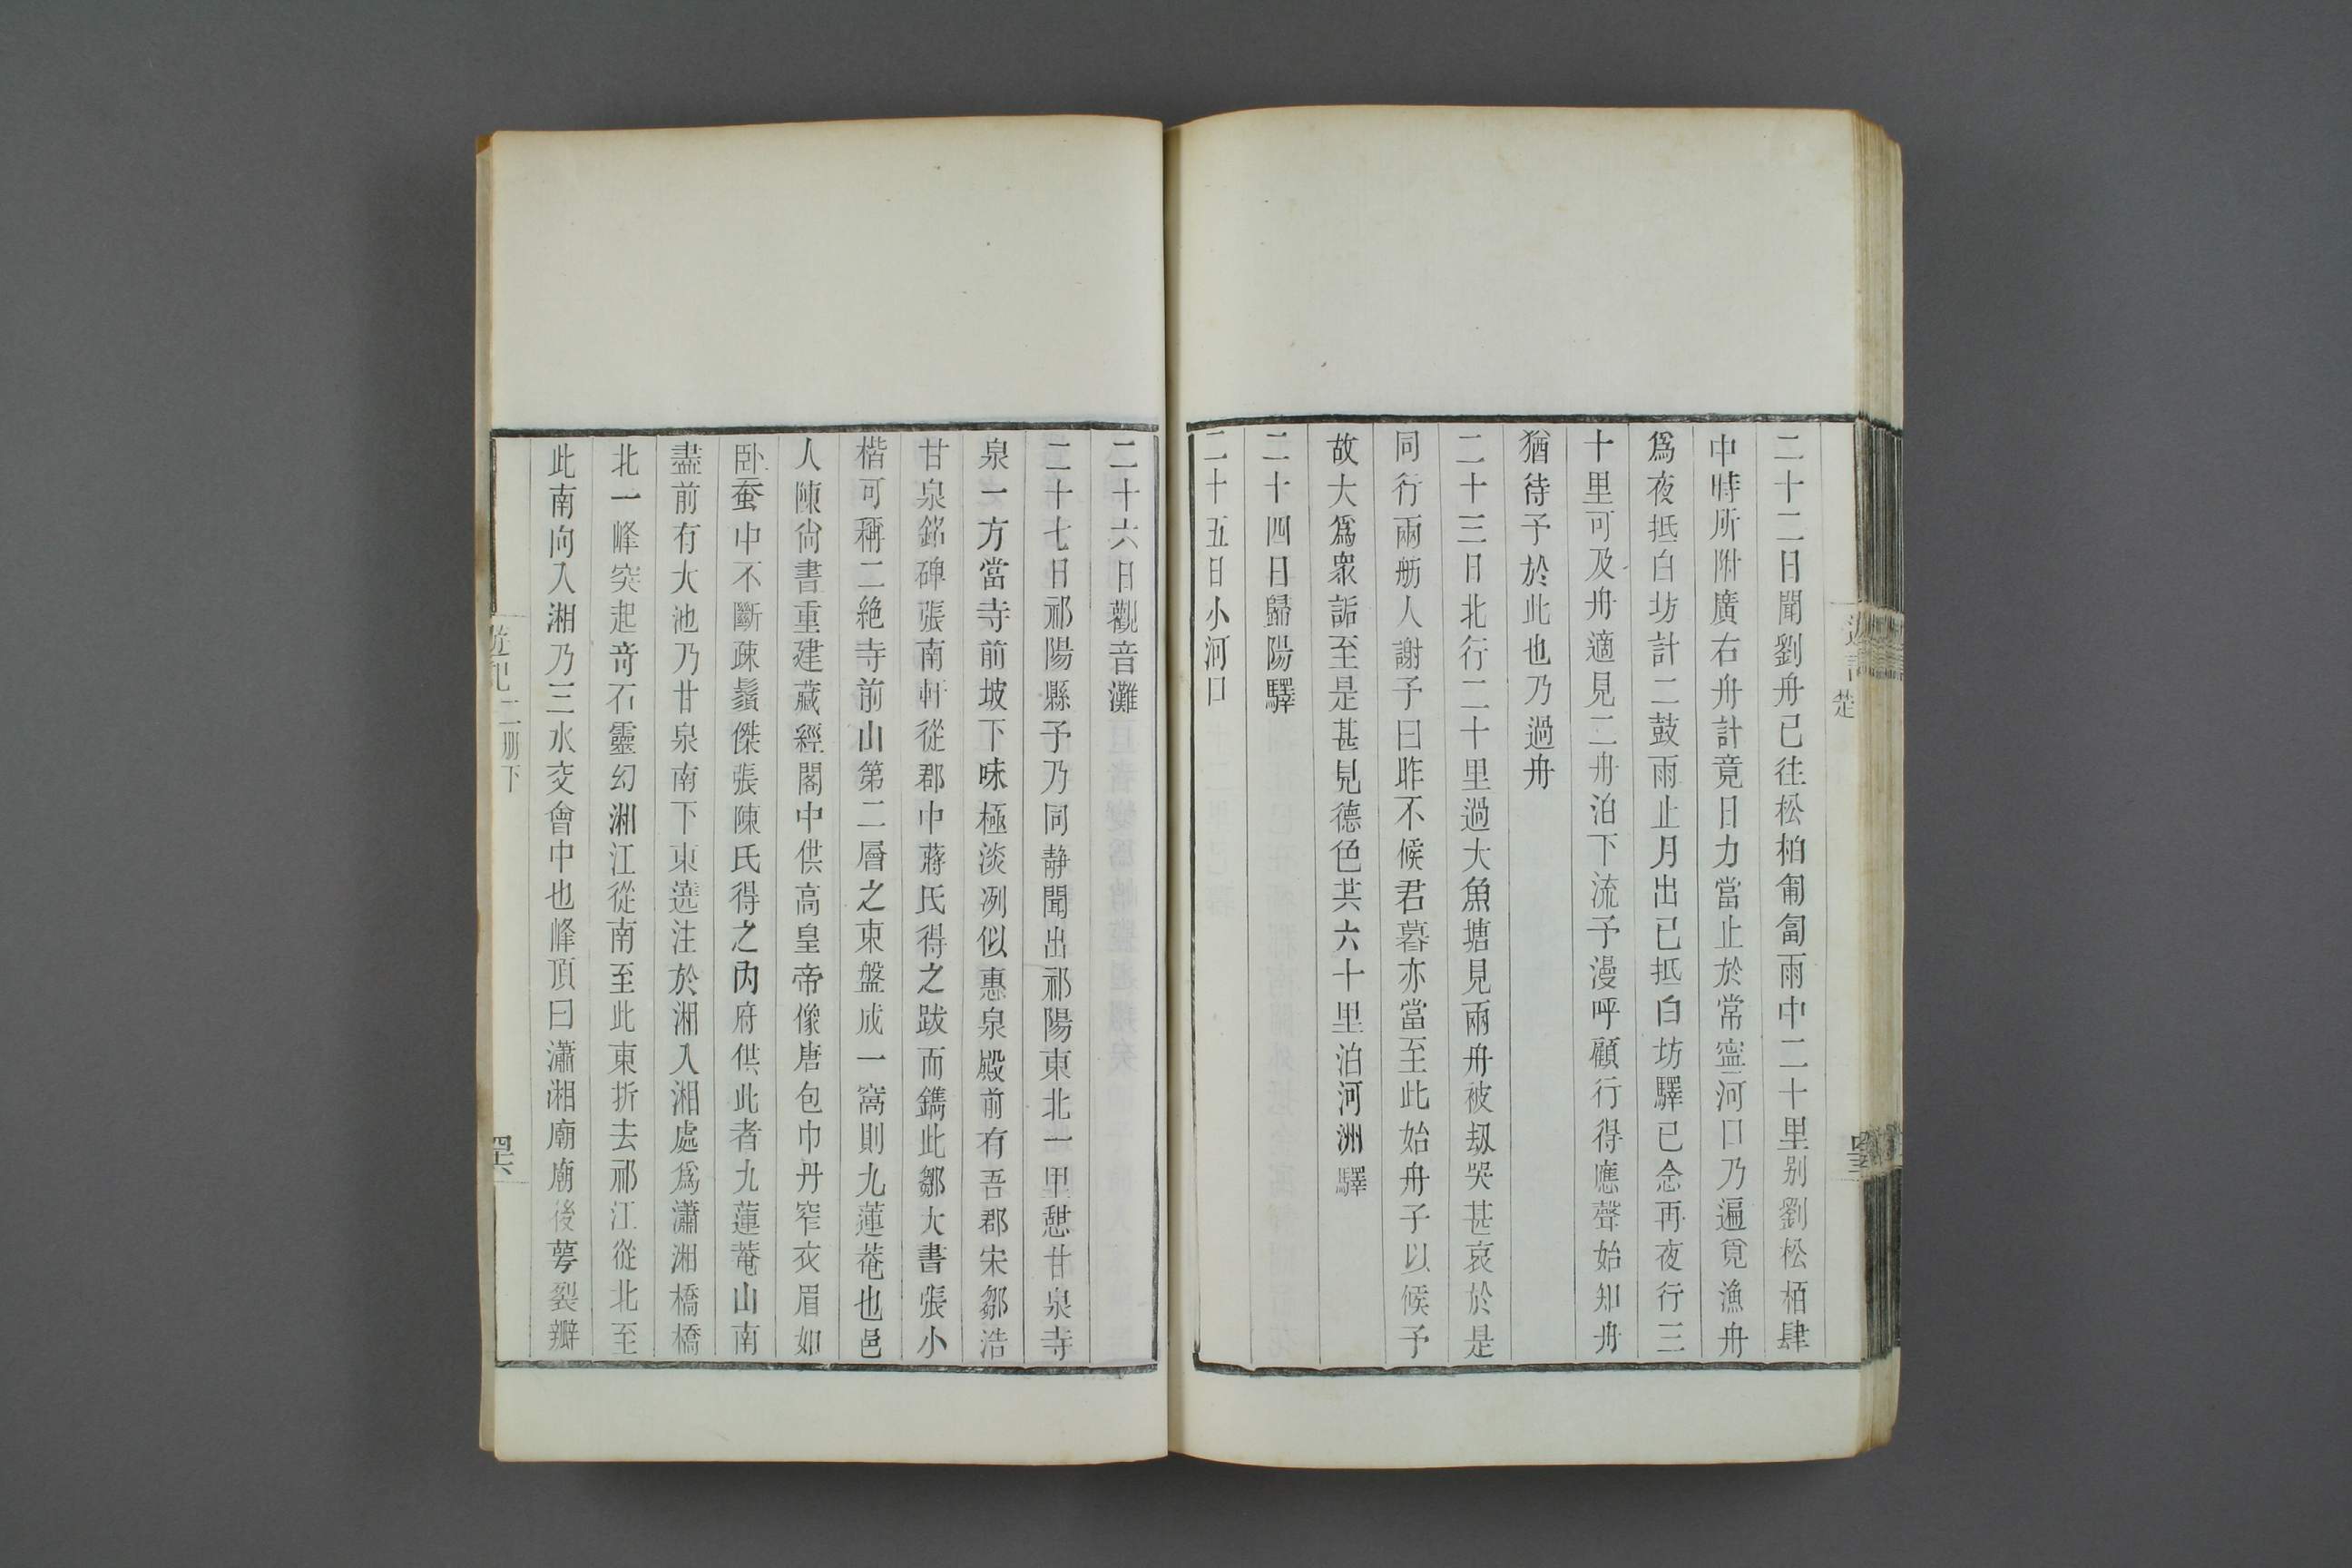 二十二日聞劉舟已往松柏匍匐雨中二十里别劉松栢肆
中時所附廣右舟計竟日力當止於常寕河口乃遍覓漁舟
爲夜抵白坊計二鼓雨止月出已抵白坊驛已念再夜行三
十里可及舟適見二舟泊下流予漫呼顧行得應聲始知舟
猶待予於此也乃過舟
二十三日北行二十里過大魚塘見兩舟被刼哭甚哀於是
同行兩舫人謝予曰昨不候君暮亦當至此始舟子以候予
故大爲衆詬至是甚見德色共六十里泊河洲驛
二十四日歸陽驛
二十五日小河口
二十六日觀音灘
二十七日祁陽縣予乃同静聞出祁陽東北一里憇甘泉寺
泉一方當寺前坡下味極淡冽似惠泉殿前有吾郡宋鄒浩
甘泉銘碑張南軒從郡中蔣氏得之跋而鐫此鄒大書張小
楷可稱二絶寺前山第二層之東盤成一窩則九蓮菴也邑
人陳尙書重建藏經閣中供高皇帝像唐包巾丹窄衣眉如
卧蚕中不斷疎鬚傑張陳氏得之內府供此者九蓮菴山南
盡前有大池乃甘泉南下東遶注於湘入湘處爲瀟湘橋橋
北一峰突起竒石靈幻湘江從南至此東折去祁江從北至
此南向入湘乃三水交會中也峰頂曰瀟湘廟廟後萼裂瓣
遊記二册下